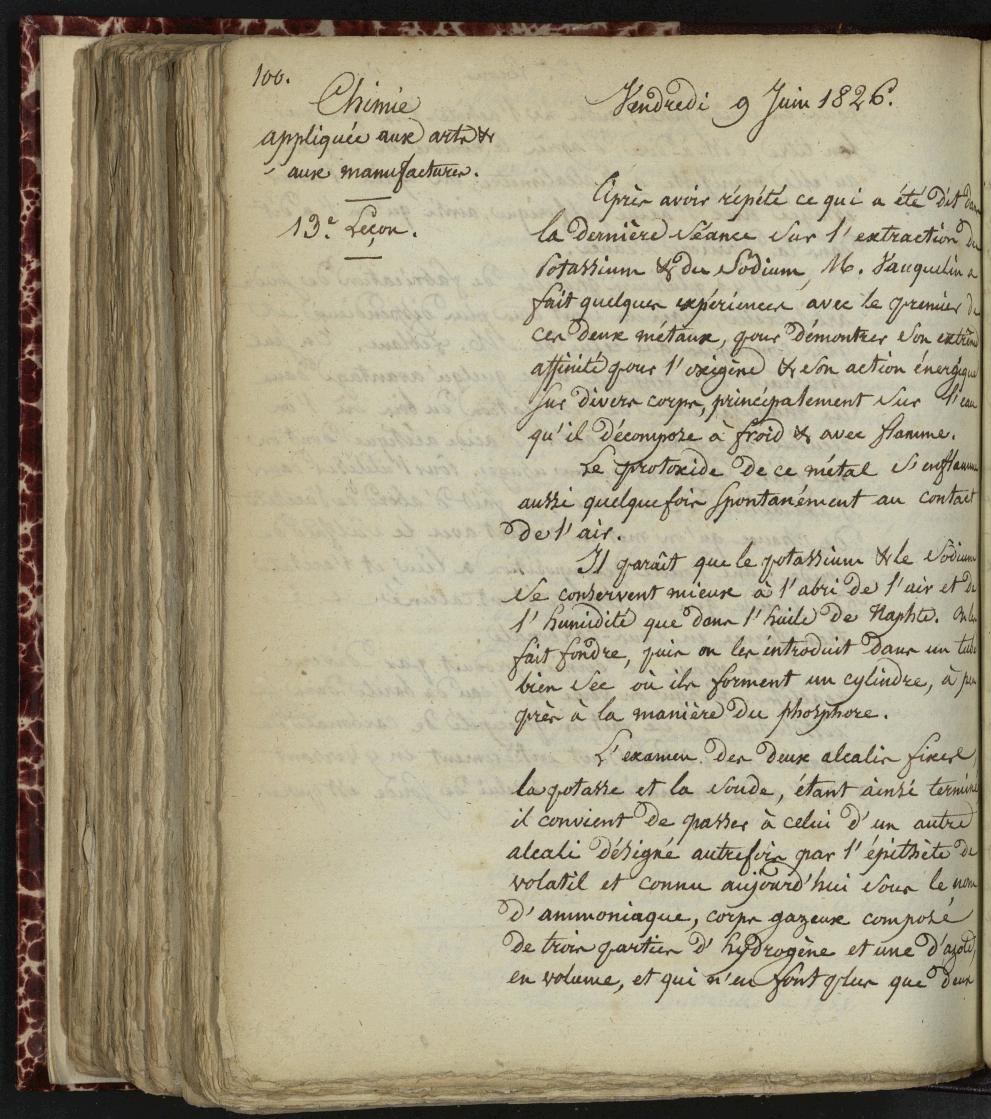 100.
Chimie
appliquée aux arts &
aux manufactures.
13.e Leçon.
Vendredi 9 Juin 1826.
Après avoir répété ce qui a été dit dans
la dernière séance sur l'extraction du
Potassium & du Sodium, M. Vauquelin a
fait quelques expériences avec le premier de
ces deux métaux, pour démontrer son extrême
affinité pour l'oxigène & son action énergique
sur divers corps, principalement sur l'eau
qu'il décompose à froid & avec flamme.
Le protoxide de ce métal s'enflamme
aussi quelquefois spontanément au contact
de l'air.
Il paraît que le potassium & le Sodium
se conservent mieux à l'abri de l'air et de
l'humidité que dans l'huile de Naphte. On les
fait fondre, puis on les introduit dans un tube
bien sec où ils forment un cylindre, à peu
près à la manière du phosphore.
L'examen des deux alcalis fixes,
la potasse et la soude, étant ainsi terminé
il convient de passer à celui d'un autre
alcali désigné autrefois par l'épithète de
volatil et connu aujourd'hui sous le nom
d'ammoniaque, corps gazeux composé
de trois parties d'hydrogène et une d'azote,
en volume, et qui n'en font plus que deux